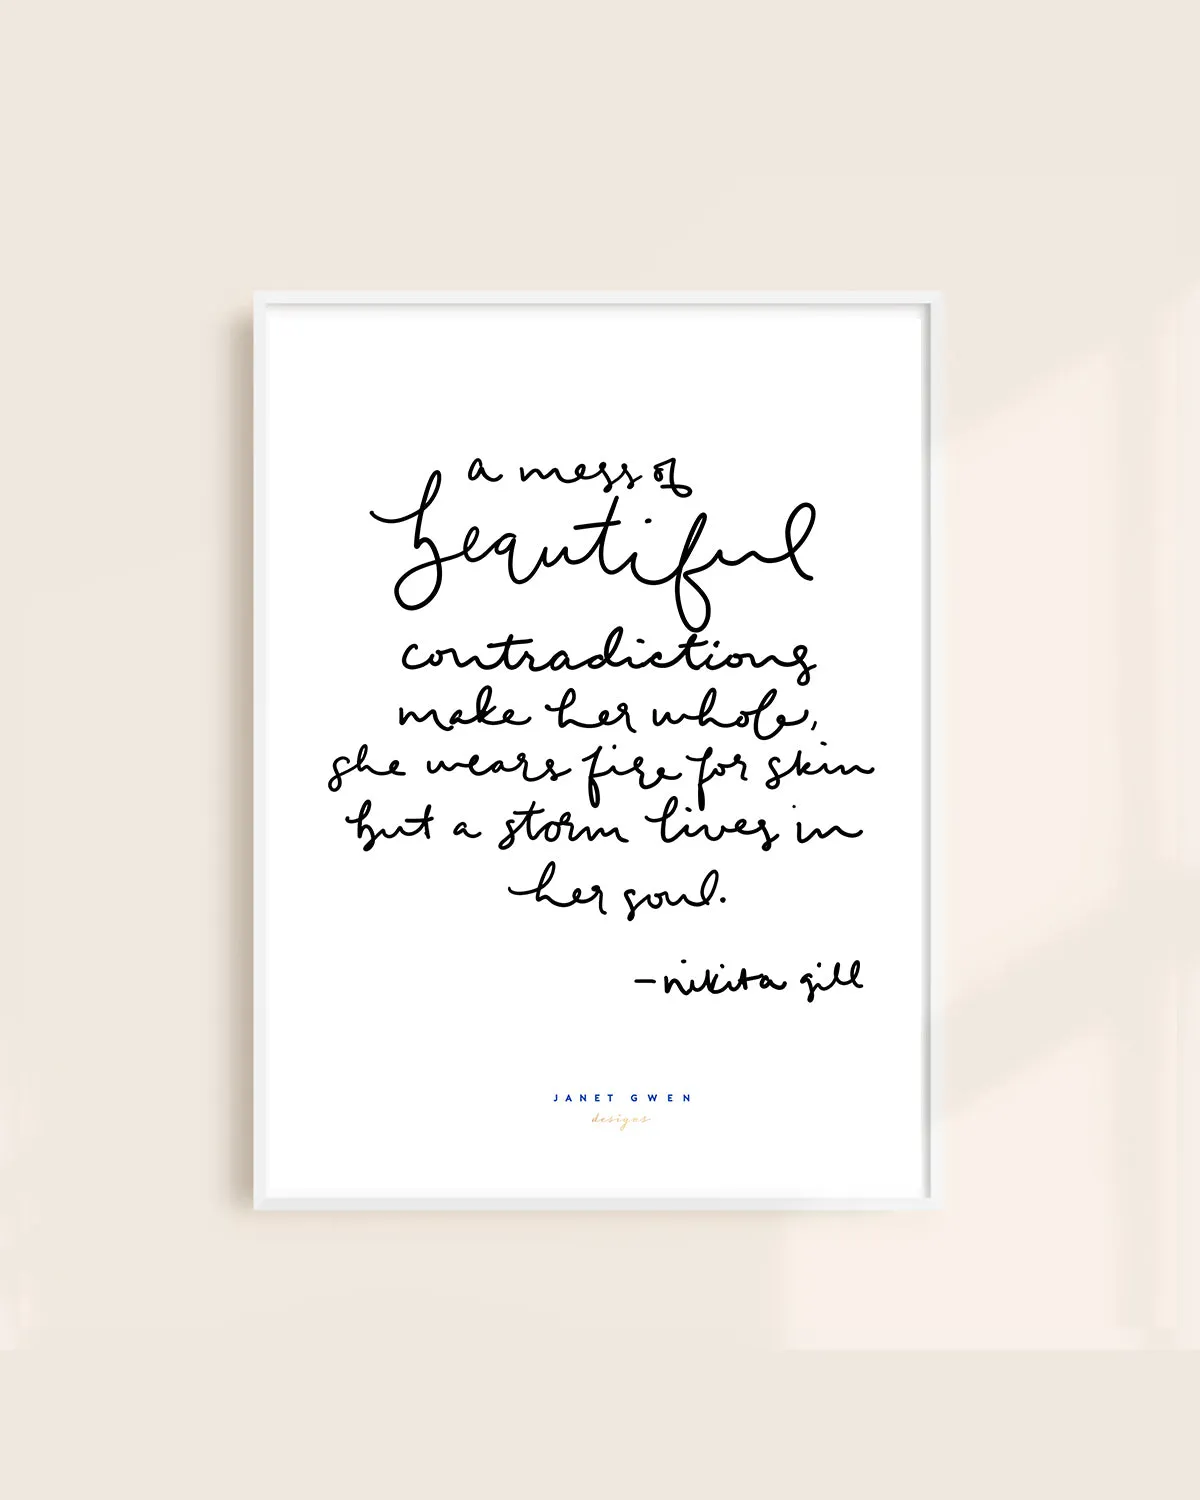 a mess of
beautiful
contradictions
make her whole,
she wears fire for skin
but a storm lives in
her soul.
–nikita gill
JANET GWEN
designs